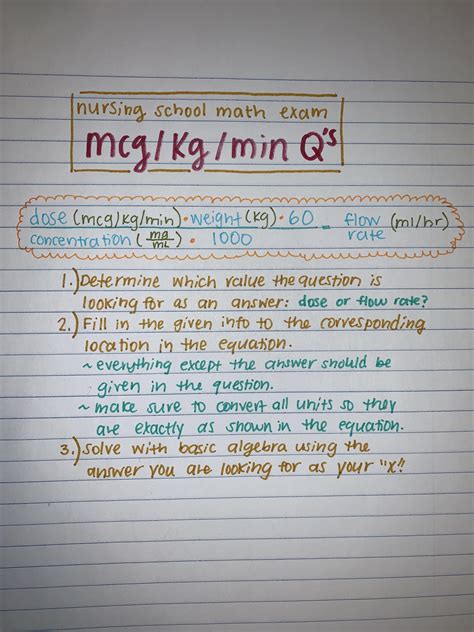 nursing school math exam
mcg/kg/min Q's
dose (mcg/kg/min) • weight (kg) • 60 = flow rate (ml/hr)
concentration (mg/mL) • 1000
1.) Determine which value the question is
looking for as an answer: dose or flow rate?
2.) Fill in the given info to the corresponding
location in the equation.
~ everything except the answer should be
given in the question.
~ make sure to convert all units so they
are exactly as shown in the equation.
3.) Solve with basic algebra using the
answer you are looking for as your "x"!